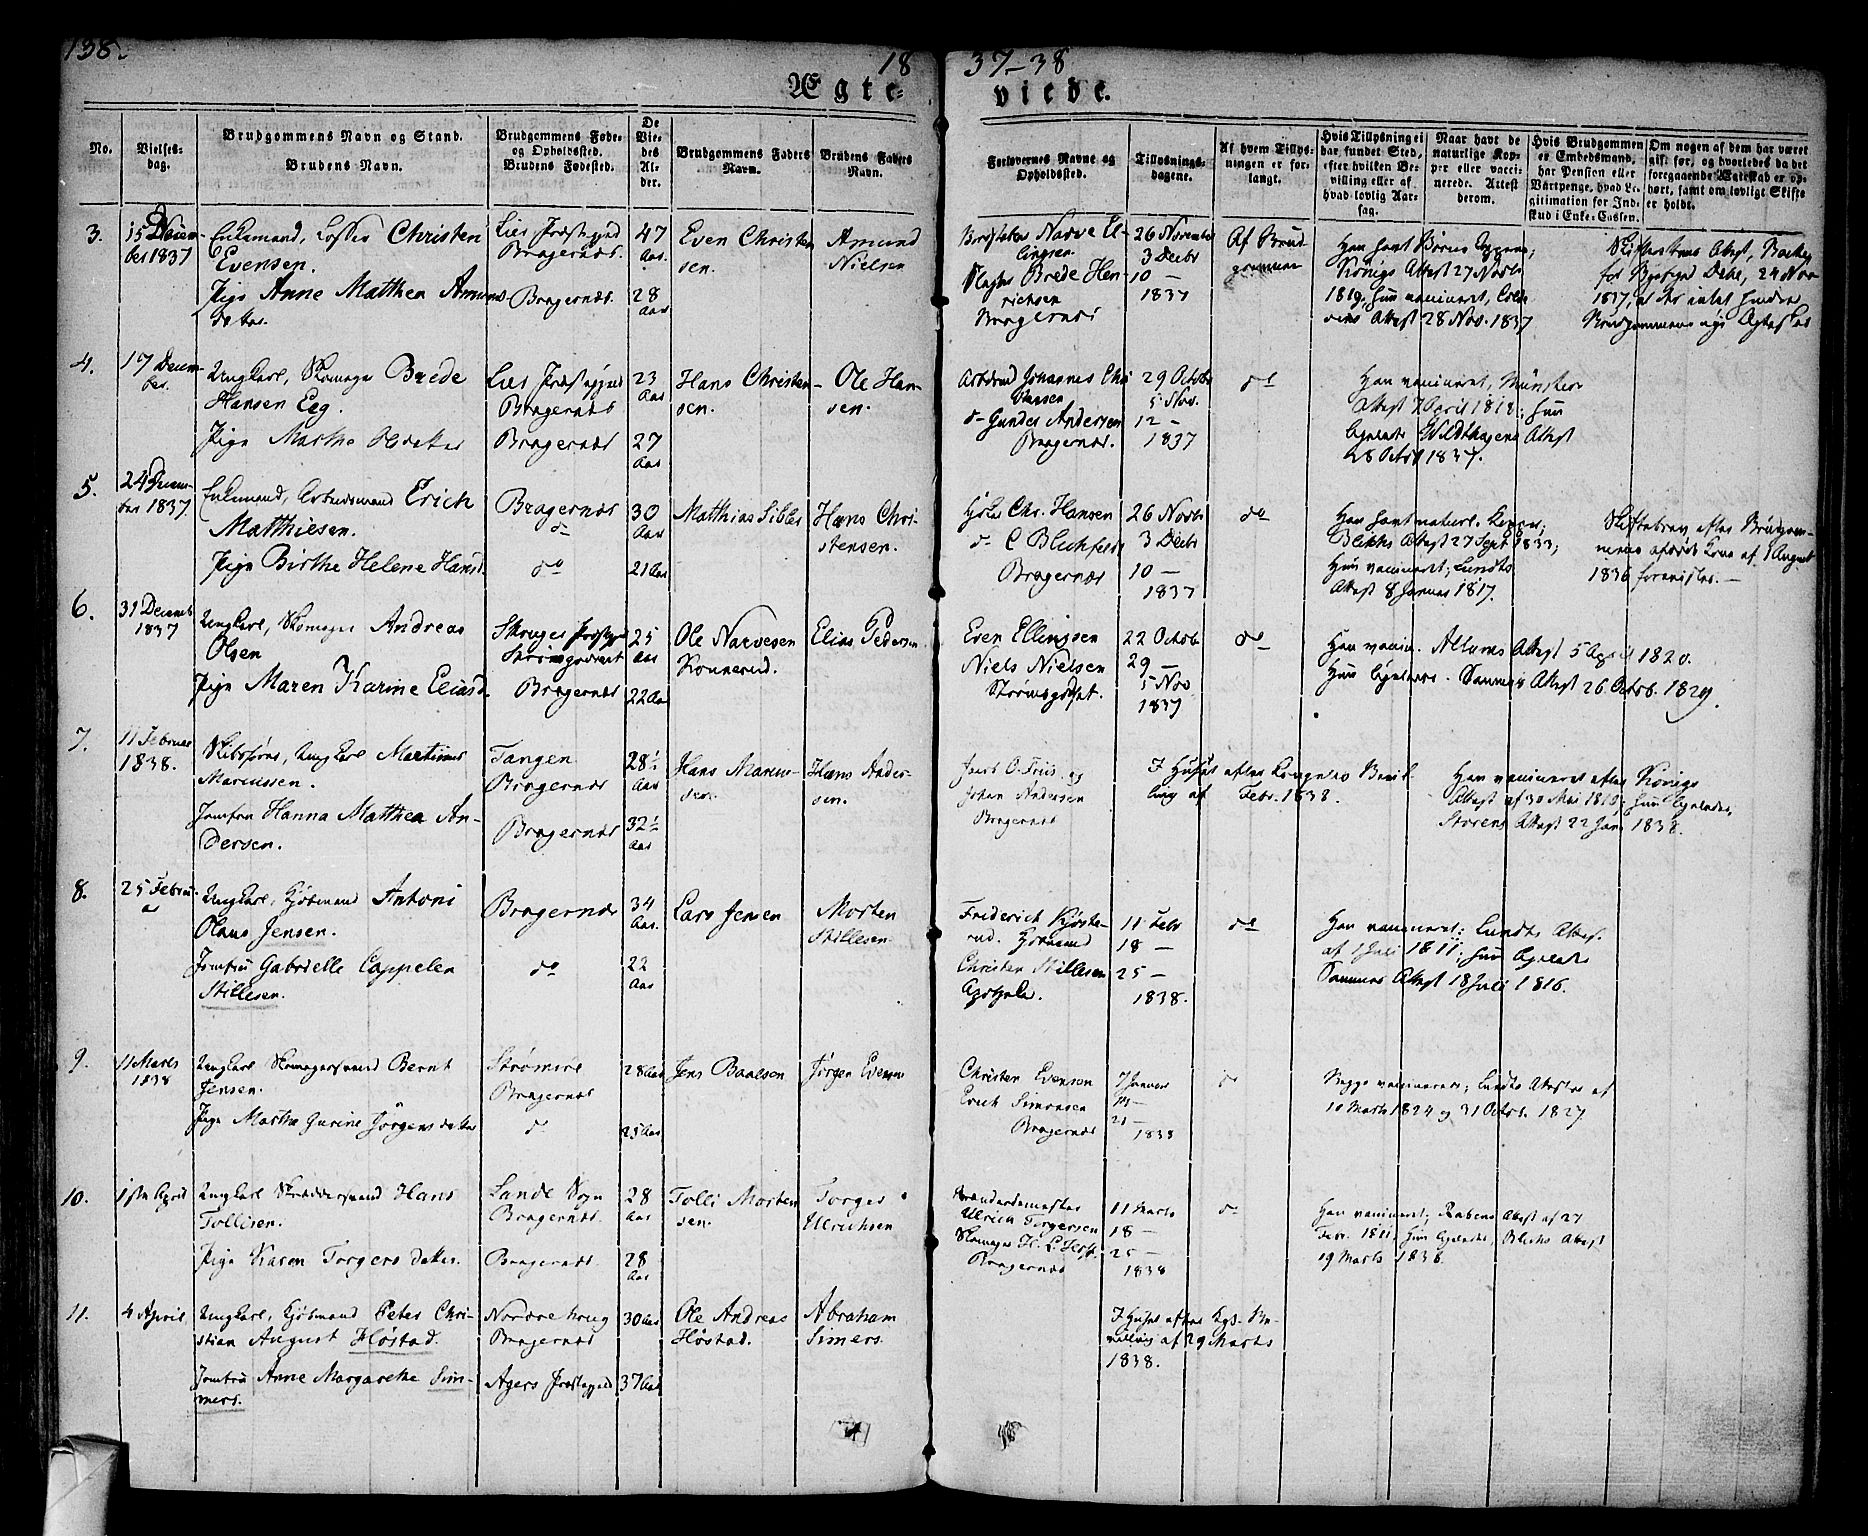 138.
18 37-38
Ægte- viede.
No.
Vielses-
dag.
Brudgommens Navn og Stand.
Brudens Navn.
Brudgommens Føde-
og Opholdssted.
Brudens Fødested.
De
Vie-
des
Al-
der.
Brudgommens Faders
Navn.
Brudens Faders
Navn.
Forlovernes Navne og
Opholdsted.
Tillysnings-
dagene.
Af hvem Tillys-
ningen er for-
langt.
Hvis Tillysning ei
har fundet Sted,
efter hvilken Be-
villing eller af
hvad lovlig Aar-
sag.
Naar havt de
naturlige Kop-
per eller vacci-
nerede. Attest
derom.
Hvis Brudgommen
er Embedsmand,
har Pension eller
Vartpenge, hvad Le-
gitimation for Ind-
skud i Enke-Cassen.
Om nogen af dem har været
gift før, og hvorledes da det
foregaaende Ægteskab er op-
hørt, samt om lovligt Skifte
er holdt.
3.
15 Decem-
ber 1837
Enkemand, Christen
Evensen.
Pige Anne Matthea Amunds-
datter.
Lier Præstegjeld
Bragernæs.
Bragernæs
47
Aar.
28
Aar
Even Christen-
sen.
Amund
Nielsen
Narve El-
lingsen
Brede Hen-
richsen
Bragernæs
26 November
3 Decbr
10 —
1837
Af Brud-
gommen
Han havt Børne Koppene;
Königs Attest 27 Novbr
1819; hun vaccineret,
Attest 28 Nov. 1837
Skifterettens Attest,
for Bygsogn 24 Nov
1837, at der intet hindrer
Brudgommens nye Ægteskab
4.
17 Decem-
ber.
Ungkarl, Skomager Brede
Hansen Eeg.
Pige Marthe Olsdatter
Lier Præstegjeld
Bragernæs
Bragernæs
23
Aar
27
Aar
Hans Christen-
sen.
Ole Han-
sen.
Johannes Chri-
stensen
do Gunder Andersen
Bragernæs.
29 Octobr
5 Nov.
12 —
1837
do
Han vaccineret, Münsters
Attest 7 April 1818; hun
ligeledes Wildthagens Attest
28 Octbr 1837.
5.
24 Decem-
ber 1837.
Enkemand, Arbeidsmand Erich
Matthiesen.
Pige Birthe Helene Hansd.
Bragernæs
do
do
30
Aar
21 Aar
Matthias Sibler
Hans Chri-
stensen.
Chr. Hansen
do C Blichfeldt
Bragernæs
26 Novbr
3 Decbr
10 —
1837
do
Han havt naturl. Kopper;
Blichs Attest 27 Sept 1833;
Hun vaccineret; Lundts
Attest 8 Januar 1817.
Skiftebrev efter Brudgom-
mens afdøde Kone af 1 August
1836 forevistes. —
6.
31 Decemb
1837
Ungkarl, Skomager Andreas
Olsen
Pige Maren Karine Eliasd.
Skouger Præstegjeld
Strømsgodset
Bragernæs
25
Aar
22 Aar
Ole Narvesen
Konnerud.
Elias Pedersen.
Even Ellingsen
Niels Nielsen
Strømsgodset.
22 Octob
29 —
5 Nov
1837
do
Han vaccin. Allums Attest 5 April 1820.
Hun ligeledes. Sammes Attest 26 Octob. 1829.
7.
11 Februar
1838.
Skibsfører, Ungkarl Martinus
Marcussen.
Jomfru Hanna Matthea An-
dersen.
Tangen
Bragernæs
Bragernæs
28½
Aar
32½
Aar
Hans Marcus-
sen.
Hans Ander-
sen.
Jacob O. Friis og
Johan Andersen
Bragernæs
I Huset efter Kongens Bevil-
ling af Febr. 1838.
Han vaccineret efter Königs
Attest af 30 Mai 1810; hun ligeledes,
Storens Attest 22 Jan 1838.
8.
25 Febru-
ar
Ungkarl, Kjøbmand Antoni
Olaus Jensen.
Jomfru Gabrielle Cappelen
Stillesen.
Bragernæs
do
34
Aar.
22
Aar
Lars Jensen
Morten
Stillesen
Frederich Kjøste-
rud. Kjøbmand
Christen Stillesen
Apotheker.
11 Febr
18 —
25 —
1838.
do
Han vaccineret; Lundts Attest
af 1 Juli 1811; hun ligeledes
Sammes Attest 18 Juli 1816.
9.
11 Marts
1838
Ungkarl Skomagersvend Bernt
Jensen.
Pige Marthe Gurine Jörgensdatter
Strømsöe
Bragernæs
do
28 Aar
25 Aar
Jens Baalsen
Jørgen Evensen
Christen Evensen
Erich Simonsen
Bragernæs
7 Januar
14 —
21 —
1838
do
Begge vaccinerede; Lundts Attester af
10 Marts 1824 og 31 Octbr. 1827
10.
1ste April
Ungkarl Skræddersvend Hans
Tollisen.
Pige Karen Torgersdatter.
Sande Sogn
Bragernæs.
Bragernæs
28
Aar
28
Aar
Tolli Morten-
sen.
Torger
Ulrichsen
Ulrich Torgersen
Skomager H. L.
Bragernæs
11 Marts
18 —
25 —
1838
do
Han vaccineret; Rabens Attest af 27
Febr. 1811, hun ligeledes, Blichs Attest
19 Marts 1838.
11.
4 April
Ungkarl, Kjøbmand Peter Chri-
stian August Høstad.
Jomfru Anne Margarethe Sim-
mers.
Nordre houg
Bragernæs
Agers Præstegjeld
30 Aar
37 Aar
Ole Andreas
Høstad.
Abraham
Simers.
I Huset efter Kgl. Be-
villing af 29 Marts
1838.